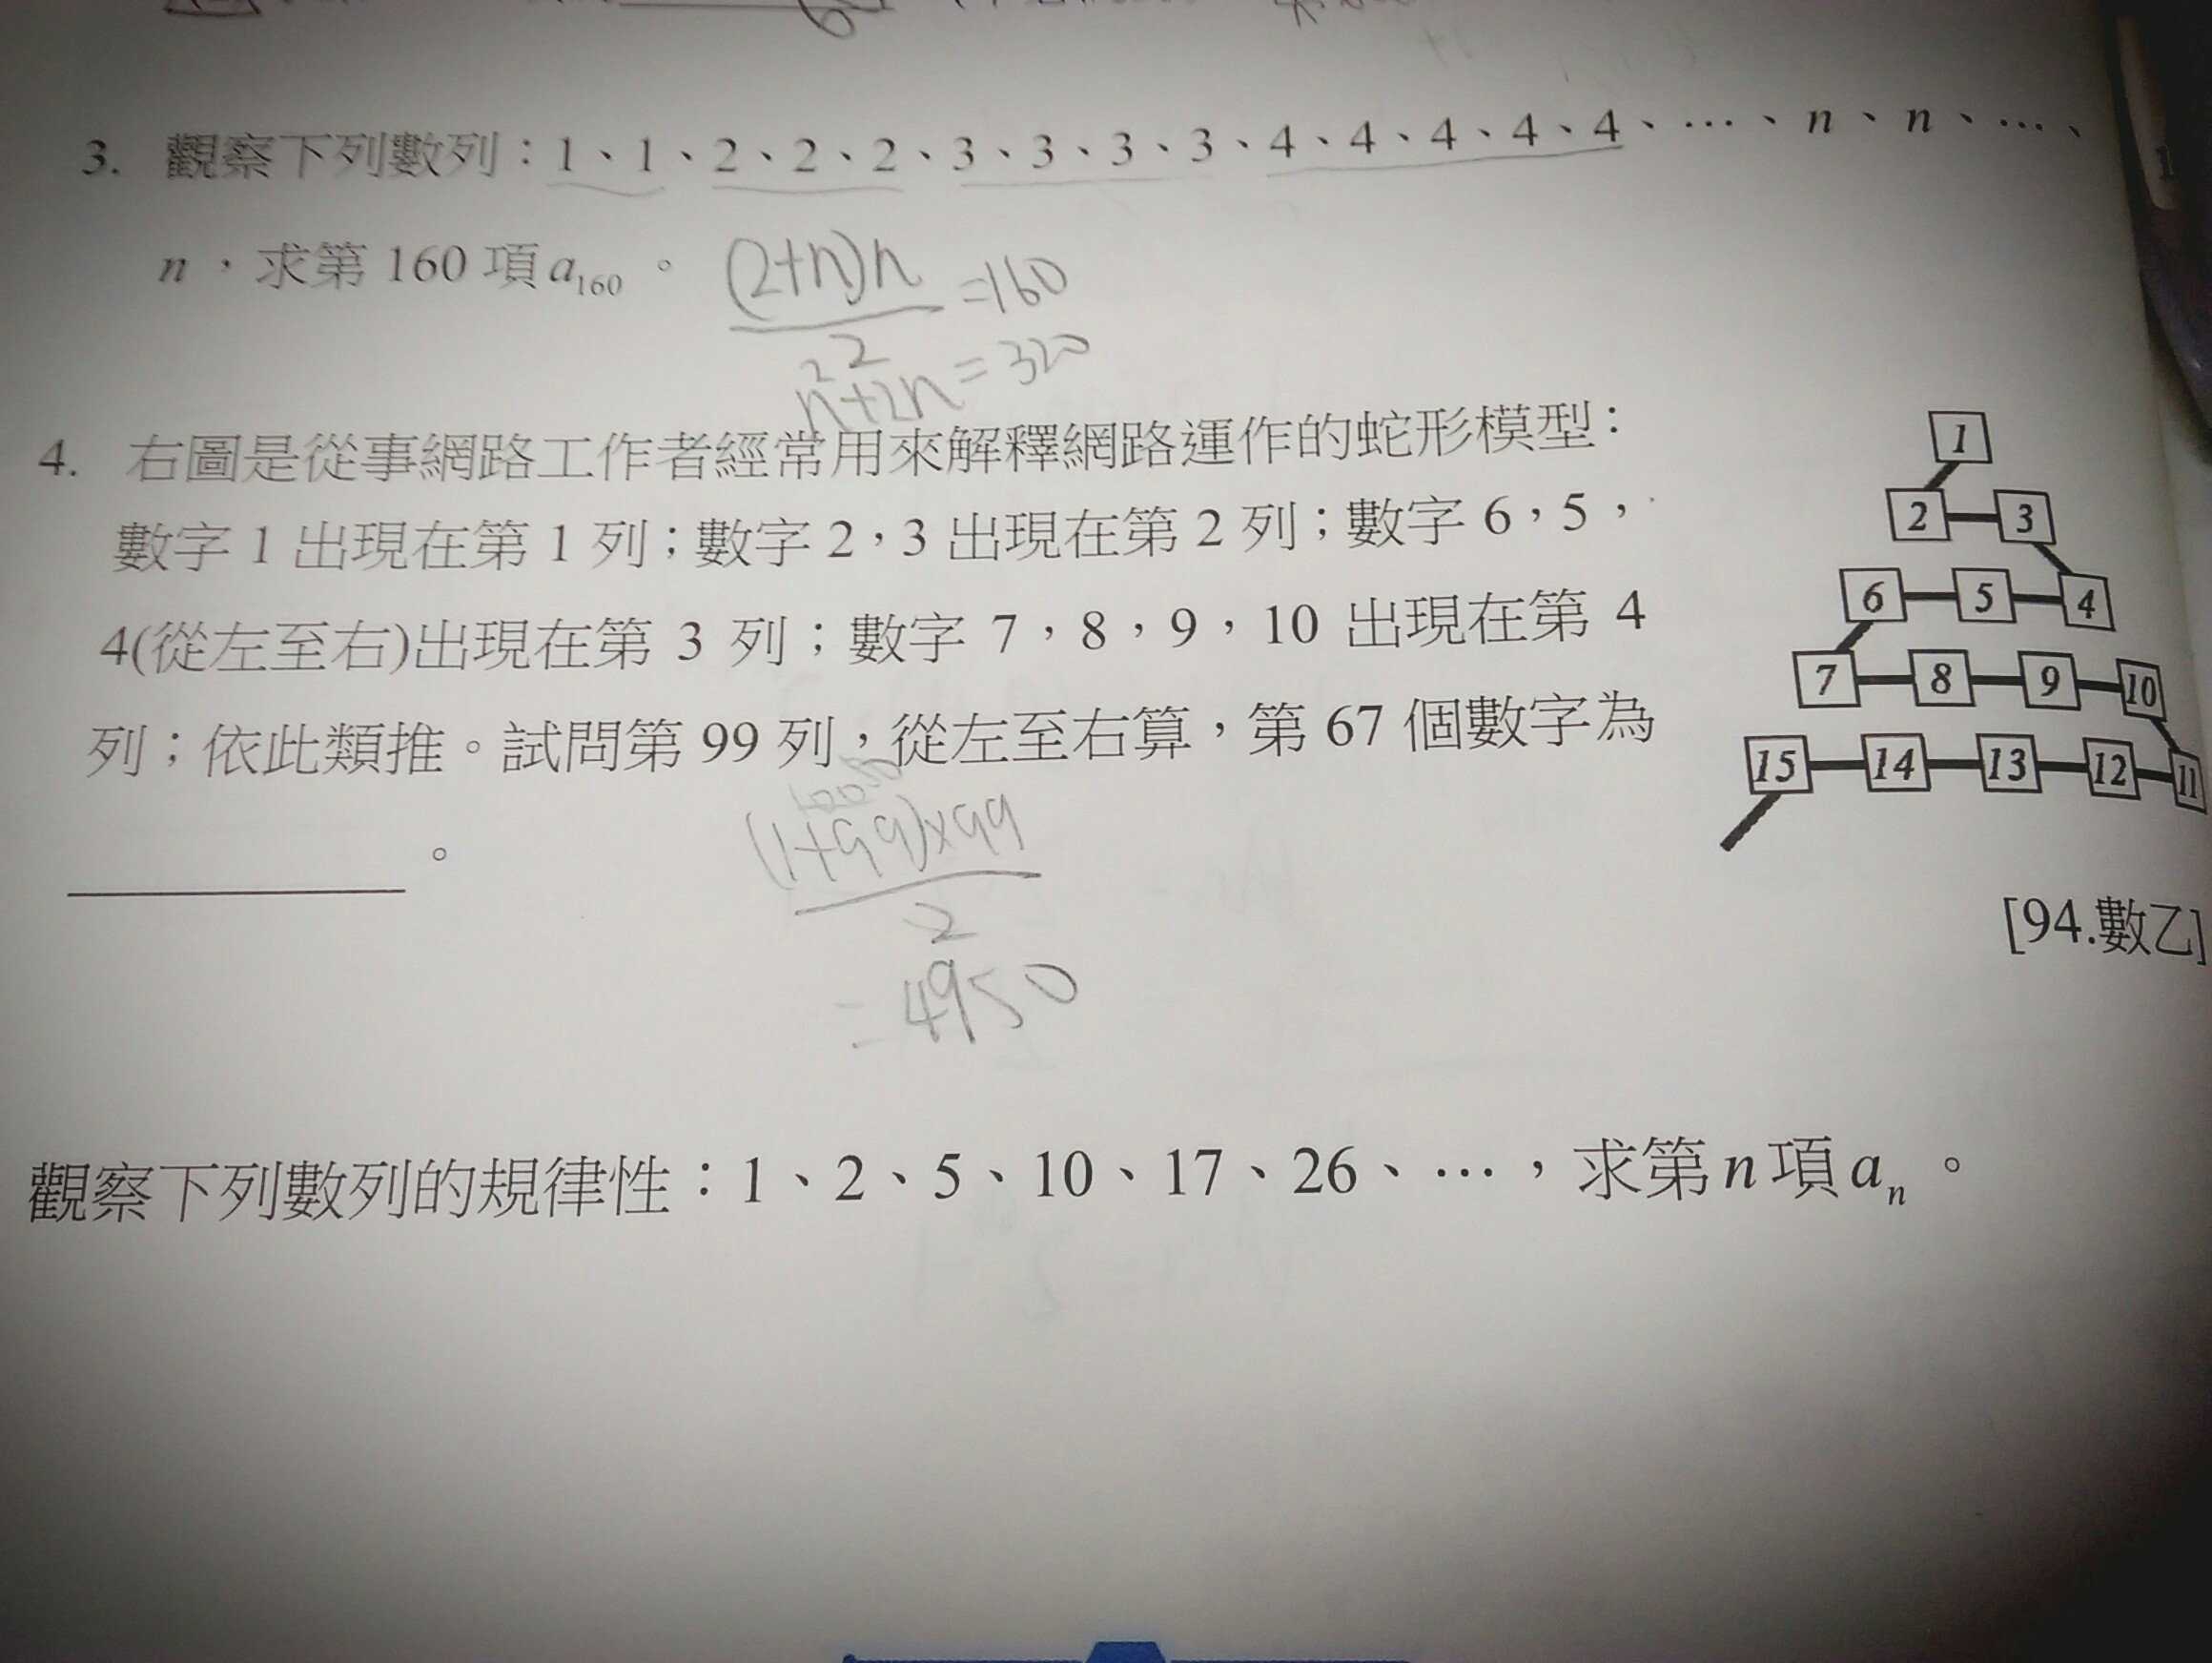 3. 觀察下列數列：1、1、2、2、2、3、3、3、3、4、4、4、4、4、⋯、n、n、⋯、
n，求第 160 項 a₁₆₀。
(2+n)n
=160
2
n²+2n=320
4. 右圖是從事網路工作者經常用來解釋網路運作的蛇形模型：
數字 1 出現在第 1 列；數字 2，3 出現在第 2 列；數字 6，5，
4(從左至右)出現在第 3 列；數字 7，8，9，10 出現在第 4
列；依此類推。試問第 99 列，從左至右算，第 67 個數字為
。
1
2 3
6 5 4
7 8 9 10
15 14 13 12 11
(1+99)×99
2
=4950
[94.數乙]
觀察下列數列的規律性：1、2、5、10、17、26、⋯，求第 n 項 aₙ。